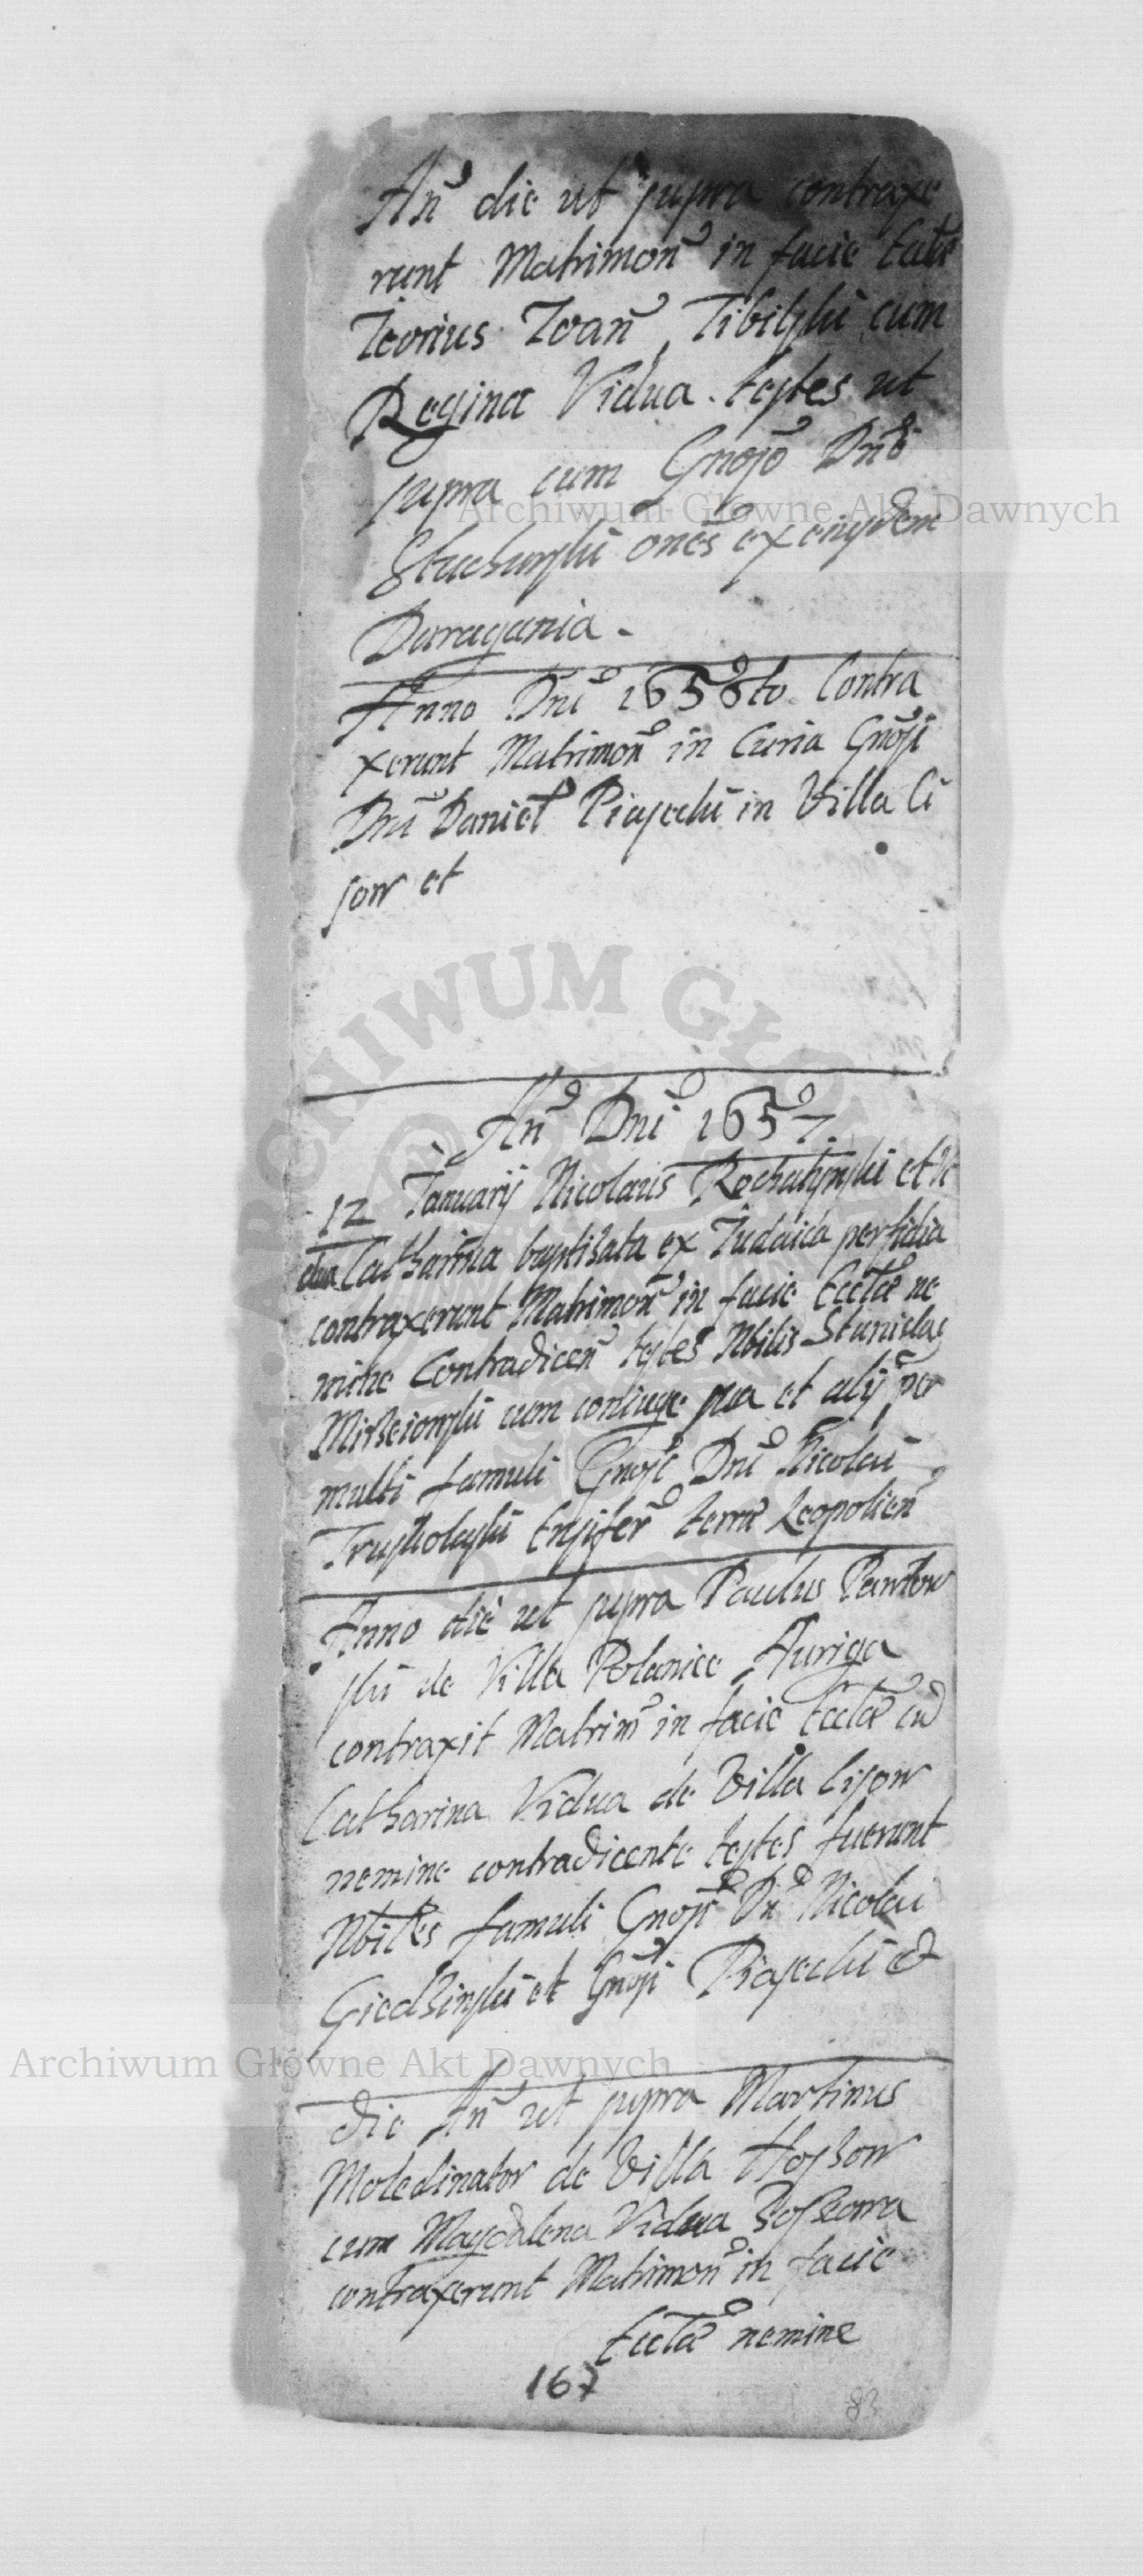 Añ die ut supra contraxe
runt Matrimoñ in facie Eccłæ
Joań, Tibilski cum
Regina Vidua. testes ut
supra cum Gnoso Dno
ones ex eiusdem
Daragania.
Anno Dni 1656to Contra
xerunt Matrimoñ in Curia Gnosi
Dni Daniel Piasecki in Villa Li
sow et
Añ Dni 1657
12 Januarij Nicolaus Rochatynski et
Catharina baptisata ex Judaica perfidia
contraxerunt Matrimoñ in facie Eccłæ ne
mine Contradiceñ testes Nbilis Stanislaus
cum coniuge sua et alij per
multi famuli Gnosi Dni Nicolai
Truskolaski Ensiferi terræ Leopolień
Anno die ut supra Paulus Pawlow
ski de Villa Polanice Auriga
contraxit Matrim in facie Eccłæ cu
Catharina Vidua de Villa Lisow
nemine contradicente testes fuerunt
Nbiles famuli Gnosi Dn Nicolai
Giedzinski et Gnosi Piasecki &
die Añ ut supra Martinus
Moledinator de Villa Hoszow
cum Magdalena Vidua
contraxerunt Matrimoñ in facie
Eccłæ nemine
167
83
Archiwum Główne Akt Dawnych
Archiwum Główne Akt Dawnych